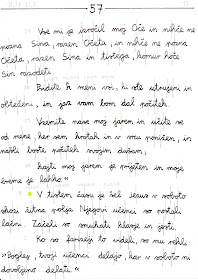 57
Vse mi je izročil moj Oče in nihče ne
pozna Sina, razen Očeta, in nihče ne pozna
Očeta, razen Sina in tistega, komur hoče
Sin razodeti.
Pridite k meni vsi, ki ste utrujeni in
obteženi, in jaz vam bom dal počitek.
Vzemite nase moj jarem in učite se
od mene, ker sem krotak in v srcu ponižen, in
našli boste počitek svojim dušam,
kajti moj jarem je prijeten in moje
breme je lahko."
V tistem času je šel Jezus v soboto
skozi žitna polja. Njegovi učenci so postali
lačni. Začeli so smukati klasje in jesti.
Ko so farizeji to videli, so mu rekli:
"Poglej, tvoji učenci delajo, kar v soboto ni
dovoljeno delati."